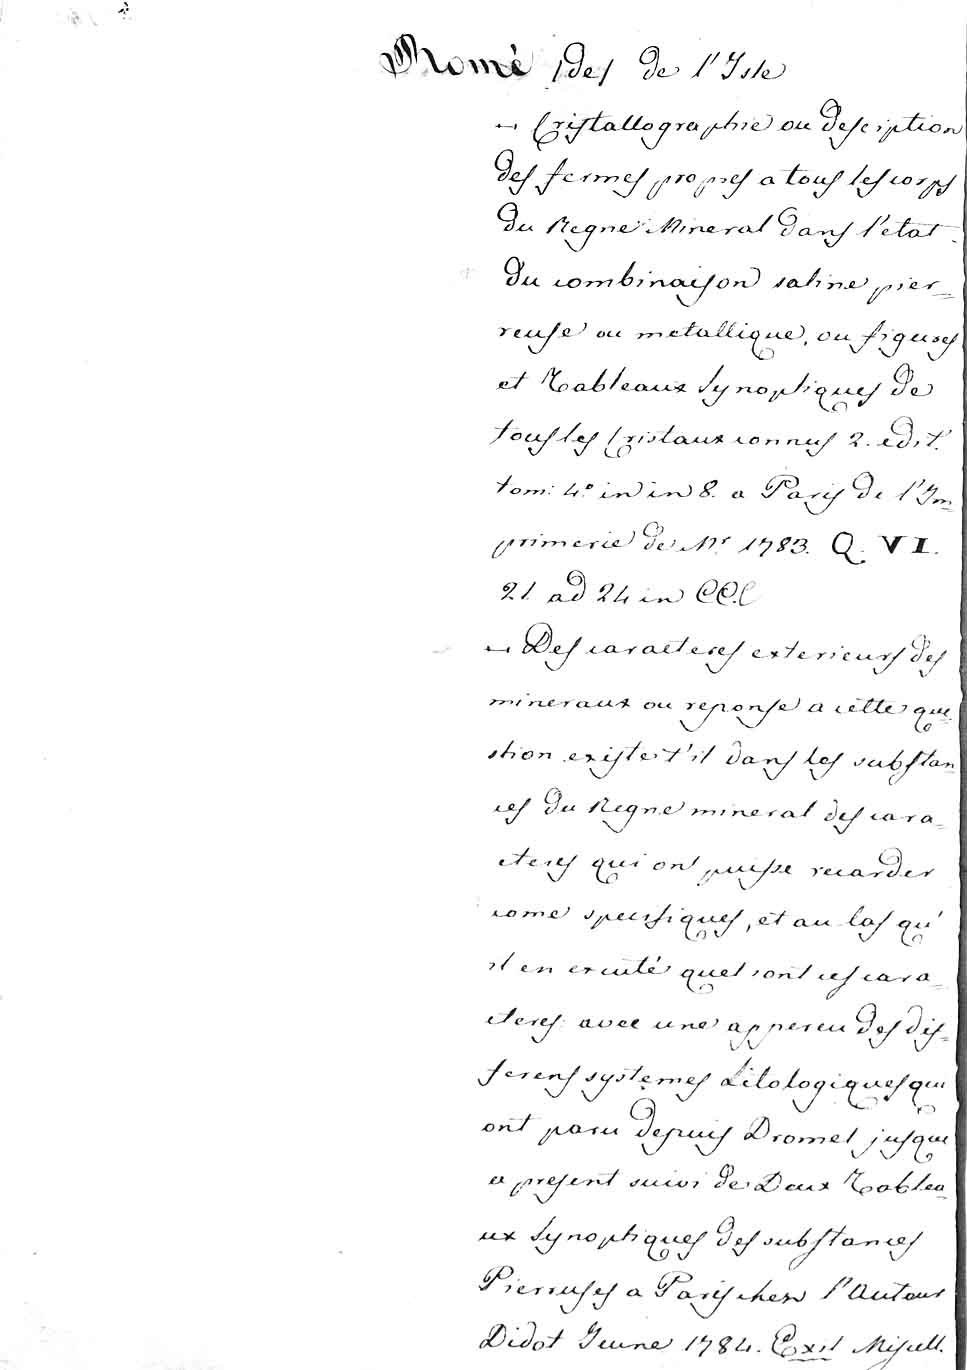 Romé (de) de l'Isle
— Cristallographie ou Desciption
des formes propres a tous les corps
du Regne Mineral dans l'etat
du combinaison saline pier=
reuse ou metallique, ou figures
et Tableaux Synoptiques de
tous les Cristaux connus 2. edit.
tom: 4.° in in 8. a Paris de l'Im=
primerie de Mr. 1783. Q. VI.
21. ad 24 in CC.C
— Des caracteres exterieurs des
mineraux ou reponse a cette que
stion existe t'il dans les substan
ces du Regne mineral des cara=
cteres qui on puisse recarder
come specifiques, et au las qu'
il en excité quel sont ces cara=
cteres avec une appercu des dis=
ferens systemes Litologiques qui
ont paru depuis Bromel jusque
a present suivi de Deux Tablea=
ux Synoptiques des substances
Pierruses a Paris chez l'Auteur
Didot Jeune 1784. Exit Miscell.